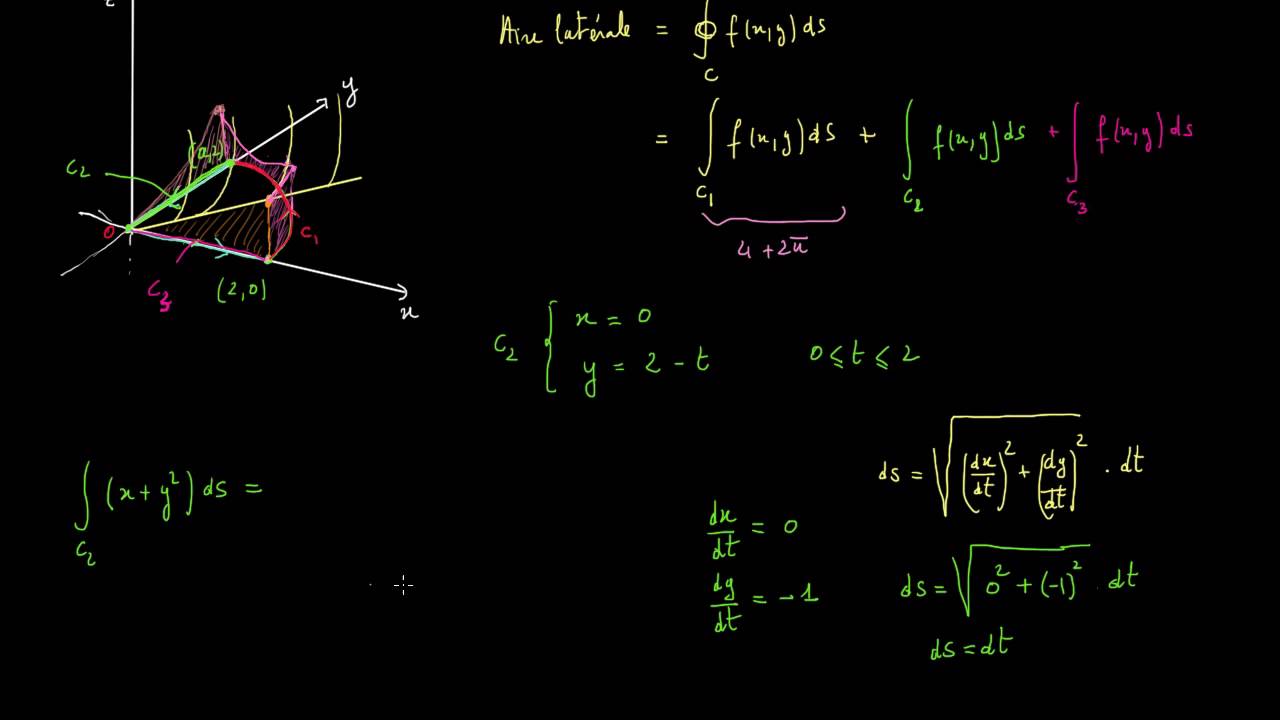 z
Aire latérale = ∮_C f(x,y) ds
= ∫_{C₁} f(x,y) ds + ∫_{C₂} f(x,y) ds + ∫_{C₃} f(x,y) ds
4 + 2π
y
(0,2)
C₂
O
C₁
C₃
(2,0)
x
C₂ { x = 0
y = 2 - t
0 ⩽ t ⩽ 2
∫_{C₂} (x + y²) ds =
ds = √((dx/dt)² + (dy/dt)²) . dt
dx/dt = 0
dy/dt = -1
ds = √(0² + (-1)²) . dt
ds = dt